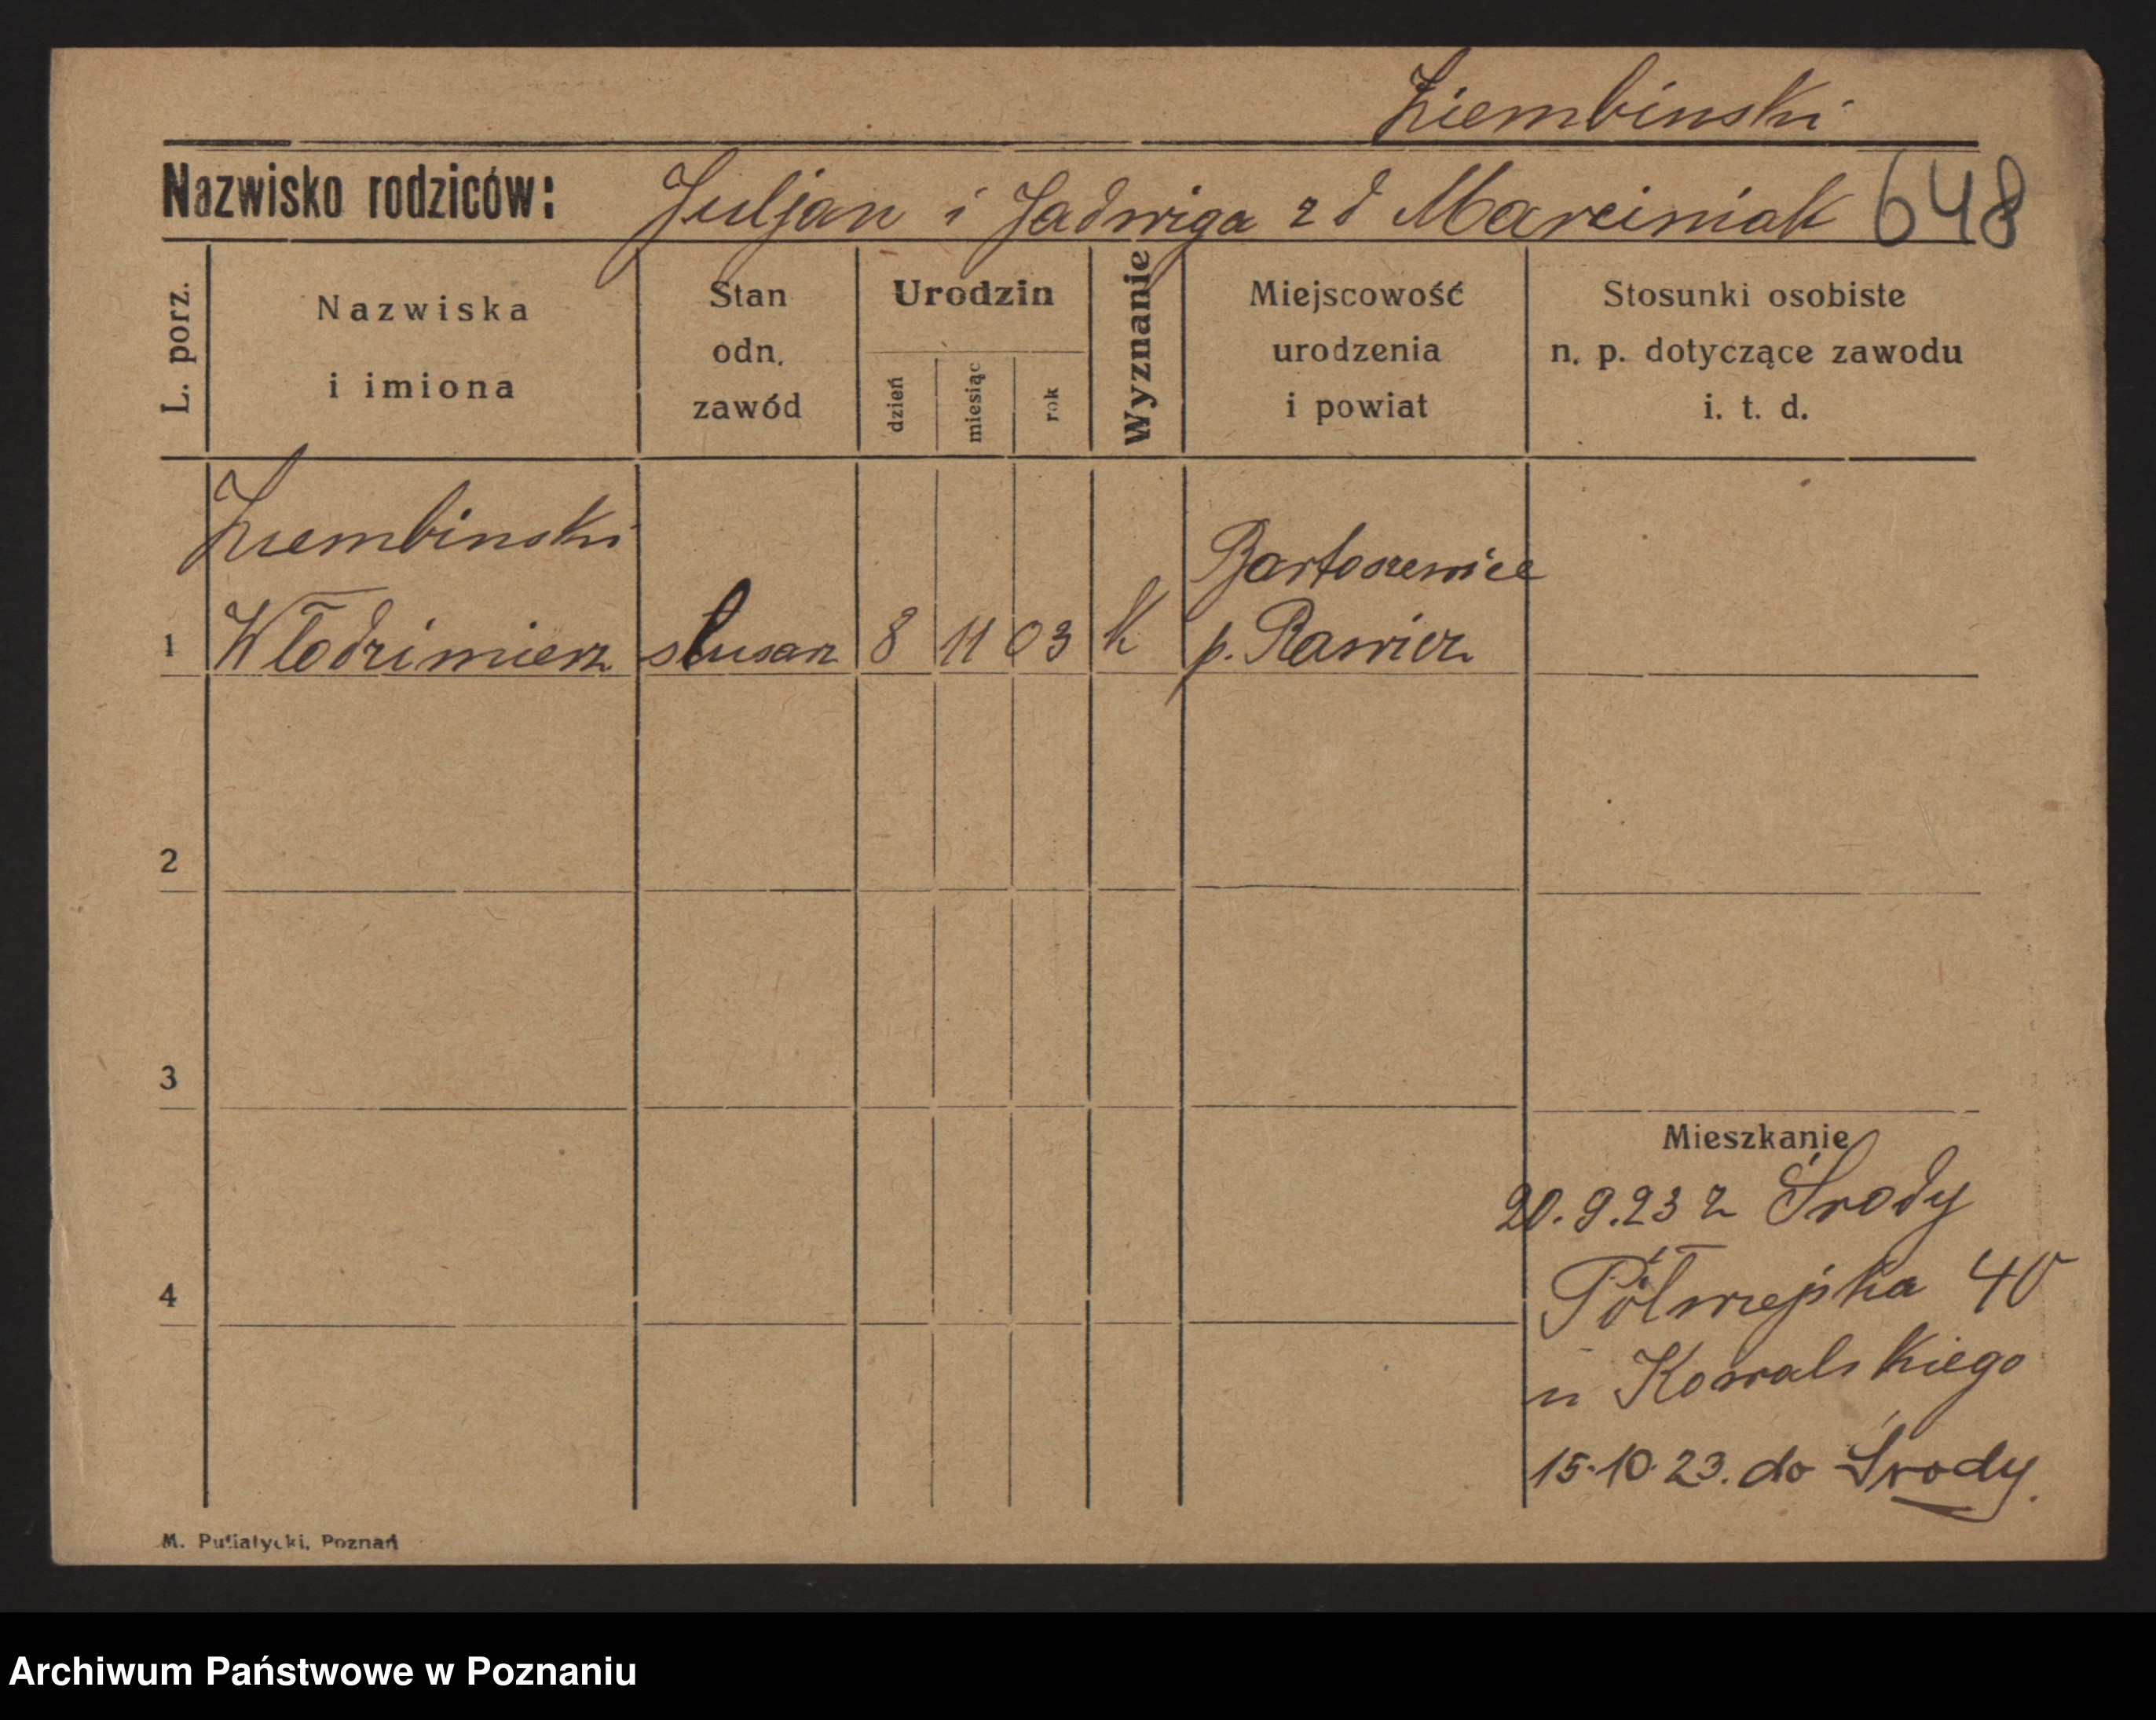 Ziembinski
Nazwisko rodziców: Juljan i Jadwiga z d Marciniak 648
L. porz.
Nazwiska
i imiona
Stan
odn.
zawód
Urodzin
dzień
miesiąc
rok
Wyznanie
Miejscowość
urodzenia
i powiat
Stosunki osobiste
n. p. dotyczące zawodu
i. t. d.
Ziembinski
Bartoszewice
1 Włodzimierz ślusarz 8 11 03 K p. Rawicz
2
3
Mieszkanie
20.9.23 z Środy
4 Półwiejska 40
u Kowalskiego
15.10.23. do Środy.
M. Putiatycki, Poznań
Archiwum Państwowe w Poznaniu